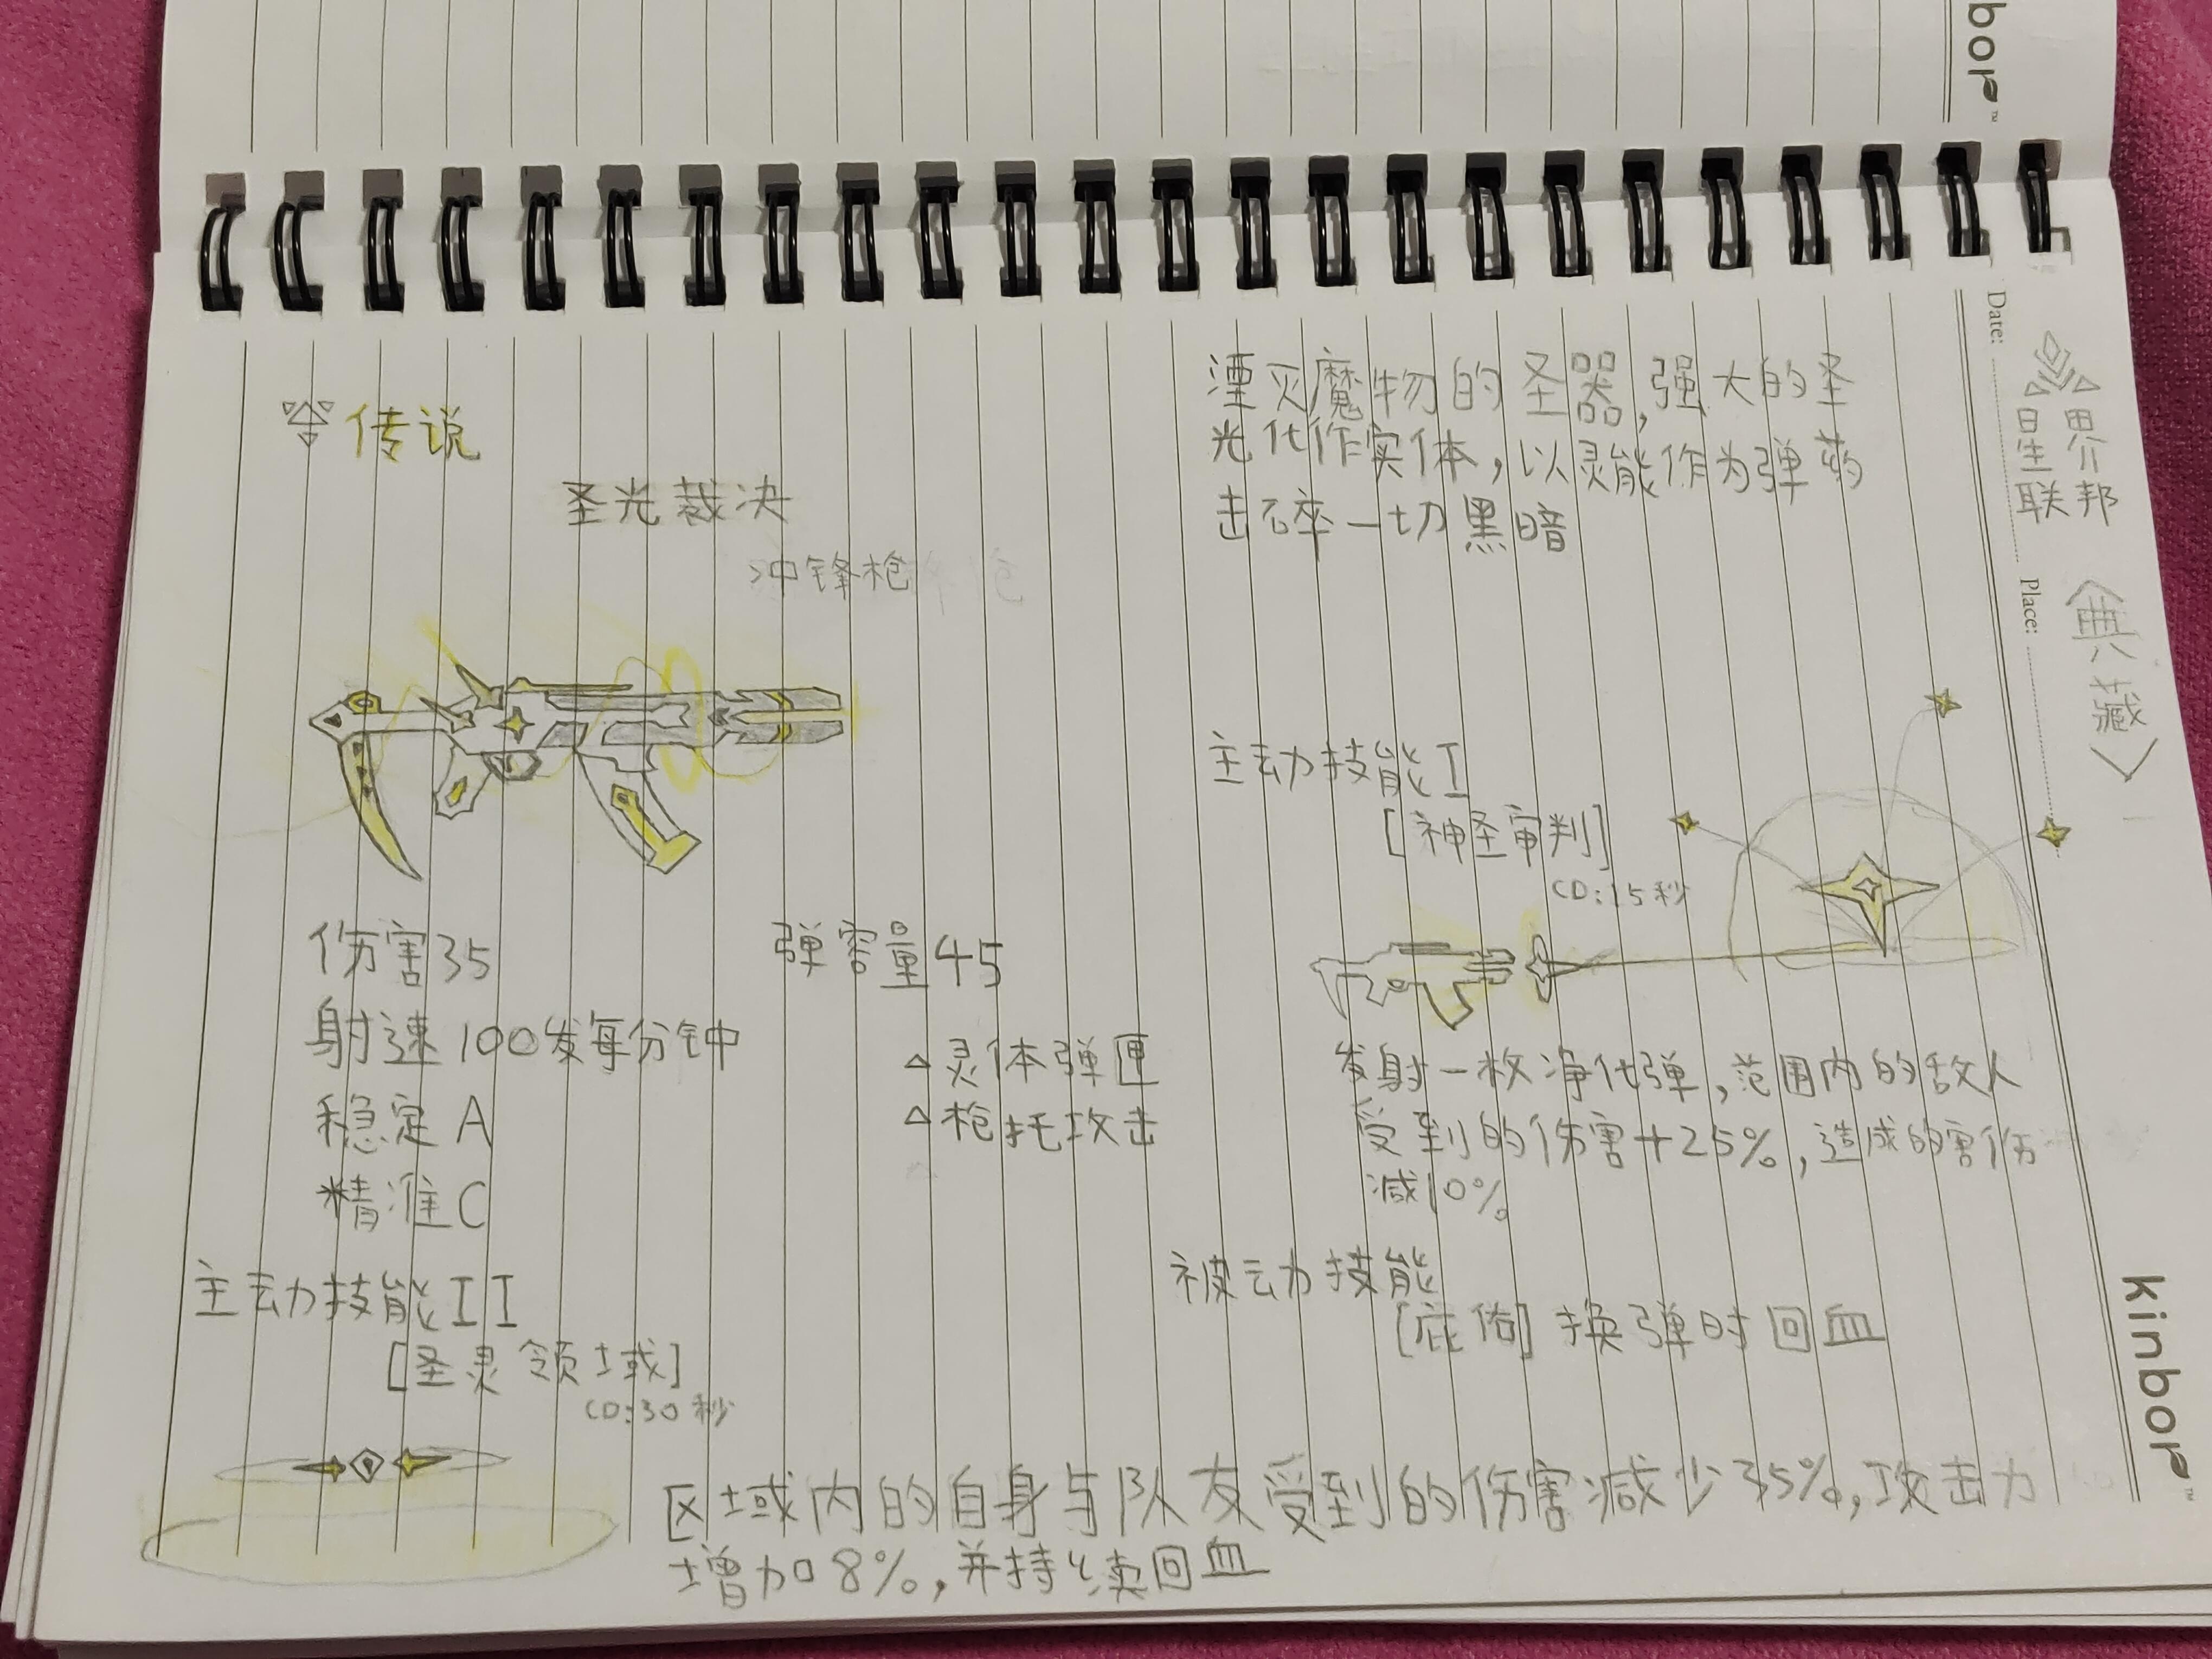 传说
圣光裁决
冲锋枪
伤害35
射速100发每分钟
稳定A
精准C
弹容量45
△灵体弹匣
△枪托攻击
主动技能II
[圣灵领域]
CD:30秒
区域内的自身与队友受到的伤害减少35%,攻击力
增加8%,并持续回血
湮灭魔物的圣器,强大的圣
光化作实体,以灵能作为弹药
击碎一切黑暗
主动技能I
[神圣审判]
CD:15秒
发射一枚净化弹,范围内的敌人
受到的伤害+25%,造成的害伤
减10%
被动技能
[庇佑]换弹时回血
星界
联邦
〈典藏〉
Date:
Place:
kinbor™
nbor™